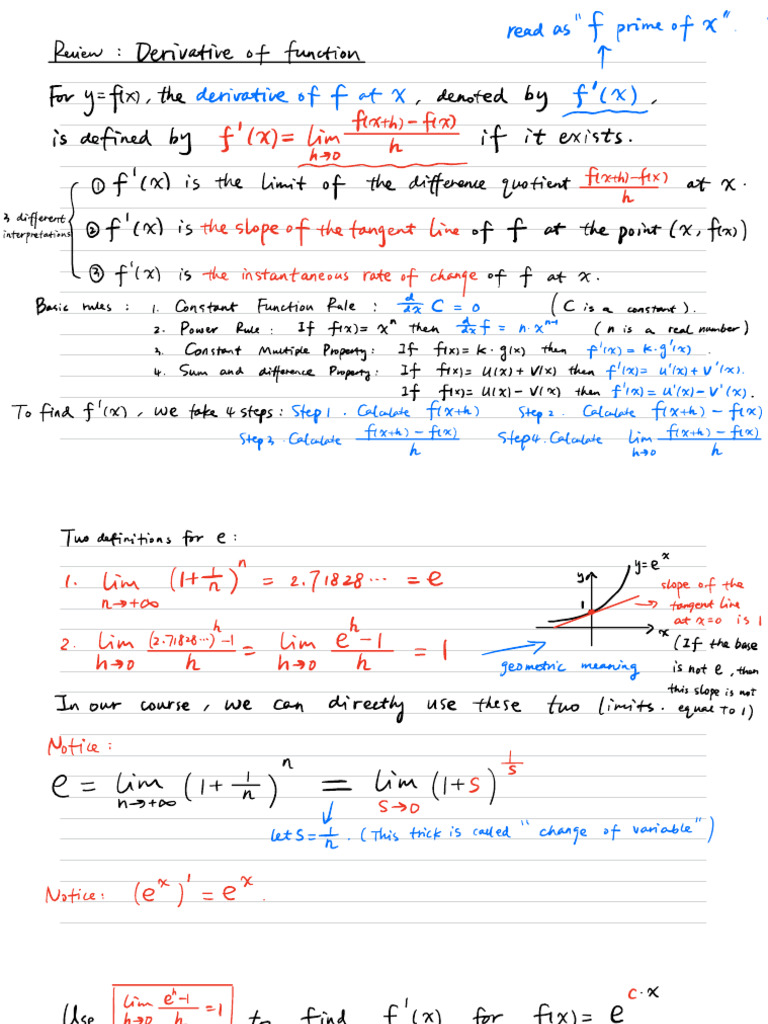 read as "f prime of x".
Review : Derivative of function
For y=f(x), the derivative of f at x, denoted by f'(x),
is defined by f'(x) = lim_{h→0} (f(x+h) − f(x))/h if it exists.
3 different interpretations
① f'(x) is the limit of the difference quotient (f(x+h)−f(x))/h at x.
② f'(x) is the slope of the tangent line of f at the point (x, f(x))
③ f'(x) is the instantaneous rate of change of f at x.
Basic rules : 1. Constant Function Rule : d/dx C = 0 (C is a constant).
2. Power Rule : If f(x)= x^n then d/dx f = n·x^{n-1} (n is a real number)
3. Constant Multiple Property : If f(x)= k·g(x) then f'(x) = k·g'(x).
4. Sum and difference Property : If f(x)= u(x) + v(x) then f'(x) = u'(x) + v'(x).
If f(x)= u(x) − v(x) then f'(x) = u'(x) − v'(x).
To find f'(x), we take 4 steps : Step 1. Calculate f(x+h) Step 2. Calculate f(x+h) − f(x)
Step 3. Calculate (f(x+h) − f(x))/h Step 4. Calculate lim_{h→0} (f(x+h) − f(x))/h
Two definitions for e :
1. lim_{n→+∞} (1+1/n)^n = 2.71828··· = e
2. lim_{h→0} ((2.71828···)^h −1)/h = lim_{h→0} (e^h −1)/h = 1
geometric meaning
y
y=e^x
1
x
slope of the
tangent line
at x=0 is 1
(If the base
is not e, then
this slope is not
equal to 1)
In our course, we can directly use these two limits.
Notice :
e = lim_{n→+∞} (1+1/n)^n = lim_{s→0} (1+s)^{1/s}
let s=1/n. (This trick is called "change of variable")
Notice : (e^x)' = e^x.
(Use lim_{h→0} (e^h −1)/h =1 to find f'(x) for f(x)= e^{c·x}